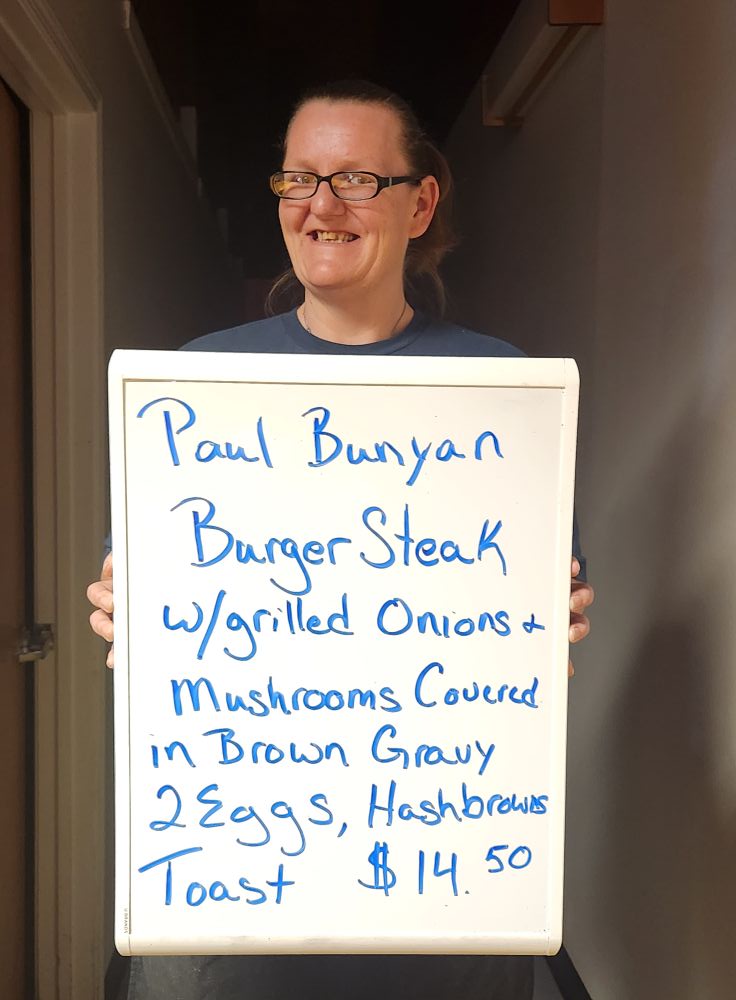 Paul Bunyan
Burger Steak
w/grilled Onions &
Mushrooms Covered
in Brown Gravy
2 Eggs, Hashbrowns
Toast $14.50